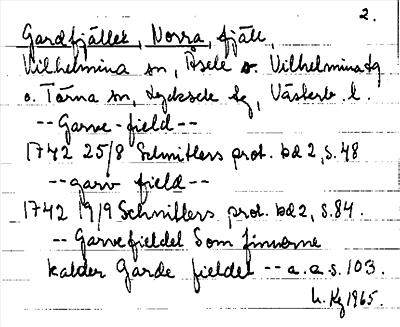 2.
Gardfjället, Norra, fjäll,
Vilhelmina sn, Åsele o. Vilhelmina tg
o. Tärna sn, Lycksele tg, Västerb. l.
-- Garve-field --
1742 25/8 Schnitlers prot. bd 2, s. 48
-- garv field --
1742 19/9 Schnitlers prot. bd 2, s. 84.
-- Garvefieldet Som finnerne
kalder Garde fieldet -- a.a. s. 103.
1965.